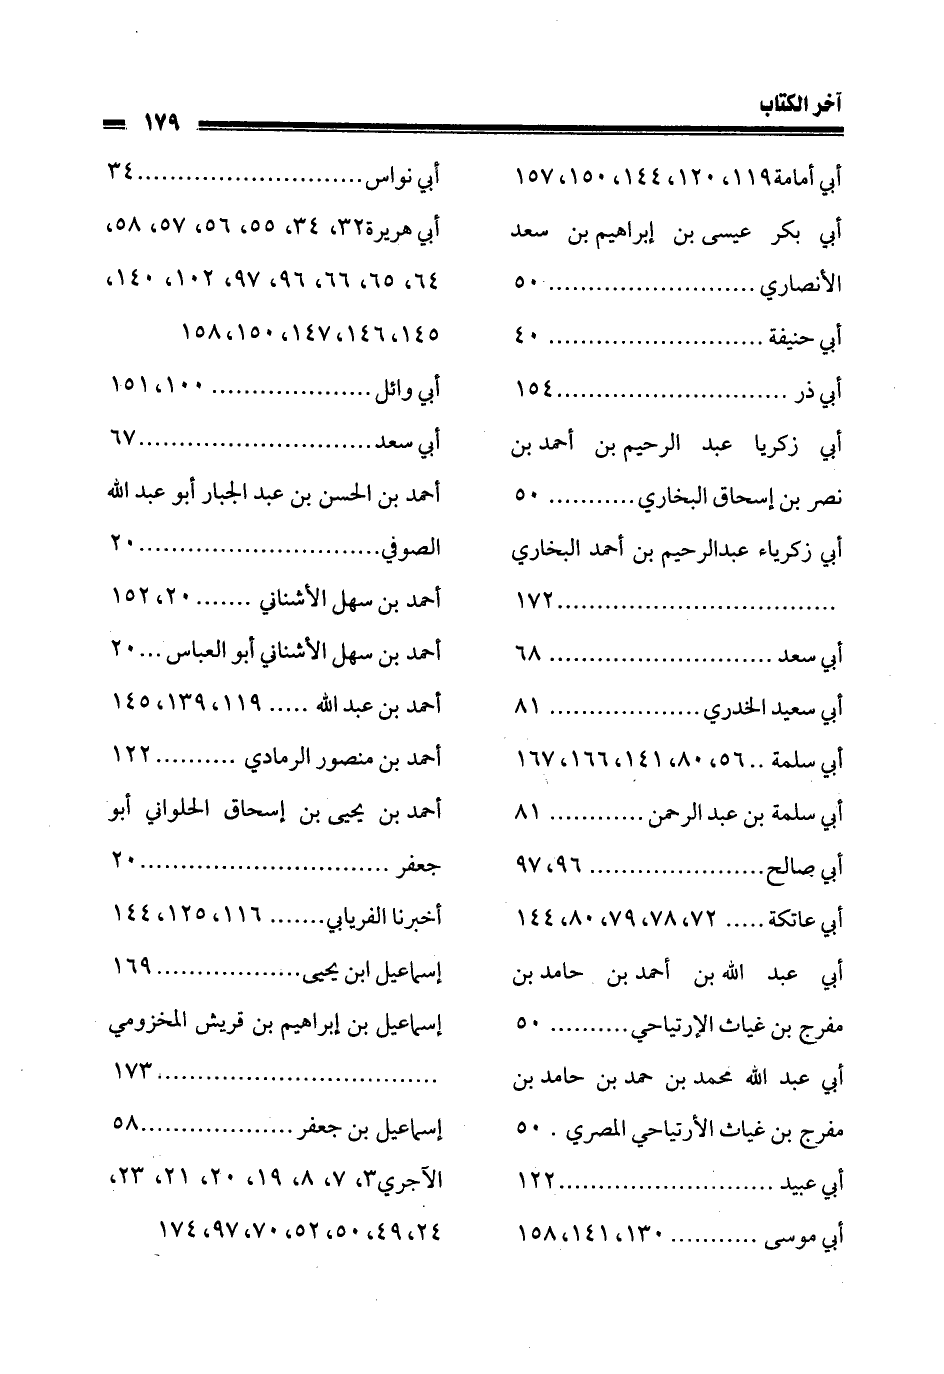 آخر الكتاب
١٧٩
أبي أمامة١١٩، ١٢٠، ١٤٤، ١٥٠، ١٥٧
أبي بكر عيسى بن إبراهيم بن سعد
الأنصاري .......................... ٥٠
أبي حنيفة ........................... ٤٠
أبي ذر .............................١٥٤
أبي زكريا عبد الرحيم بن أحمد بن
نصر بن إسحاق البخاري........... ٥٠
أبي زكرياء عبدالرحيم بن أحمد البخاري
...................................١٧٢
أبي سعد ............................ ٦٨
أبي سعيد الخدري................... ٨١
أبي سلمة .. ٥٦، ٨٠، ١٤١، ١٦٦، ١٦٧
أبي سلمة بن عبد الرحمن............ ٨١
أبي صالح...................... ٩٦، ٩٧
أبي عاتكة ..... ٧٢، ٧٨، ٧٩، ٨٠، ١٤٤
أبي عبد الله بن أحمد بن حامد بن
مفرج بن غياث الإرتياحي.......... ٥٠
أبي عبد الله محمد بن حمد بن حامد بن
مفرج بن غياث الأرتياحي المصري . ٥٠
أبي عبيد ...........................١٢٢
أبي موسى ........... ١٣٠، ١٤١، ١٥٨
أبي نواس.............................٣٤
أبي هريرة٣٢، ٣٤، ٥٥، ٥٦، ٥٧، ٥٨،
٦٤، ٦٥، ٦٦، ٩٦، ٩٧، ١٠٢، ١٤٠،
١٤٥، ١٤٦، ١٤٧، ١٥٠، ١٥٨
أبي وائل.................... ١٠٠، ١٥١
أبي سعد.............................٦٧
أحمد بن الحسن بن عبد الجبار أبو عبد الله
الصوفي..............................٢٠
أحمد بن سهل الأشناني ....... ٢٠، ١٥٢
أحمد بن سهل الأشناني أبو العباس ...٢٠
أحمد بن عبد الله ..... ١١٩، ١٣٩، ١٤٥
أحمد بن منصور الرمادي ..........١٢٢
أحمد بن يحيى بن إسحاق الحلواني أبو
جعفر ...............................٢٠
أخبرنا الفريابي....... ١١٦، ١٢٥، ١٤٤
إسماعيل ابن يحيى..................١٦٩
إسماعيل بن إبراهيم بن قريش المخزومي
...................................١٧٣
إسماعيل بن جعفر ...................٥٨
الآجري٣، ٧، ٨، ١٩، ٢٠، ٢١، ٢٣،
٢٤، ٤٩، ٥٠، ٥٢، ٧٠، ٩٧، ١٧٤